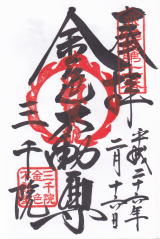 奉拝
平成二十六年
二月十六日
金色不動尊
三千院
三千院
金色
不動